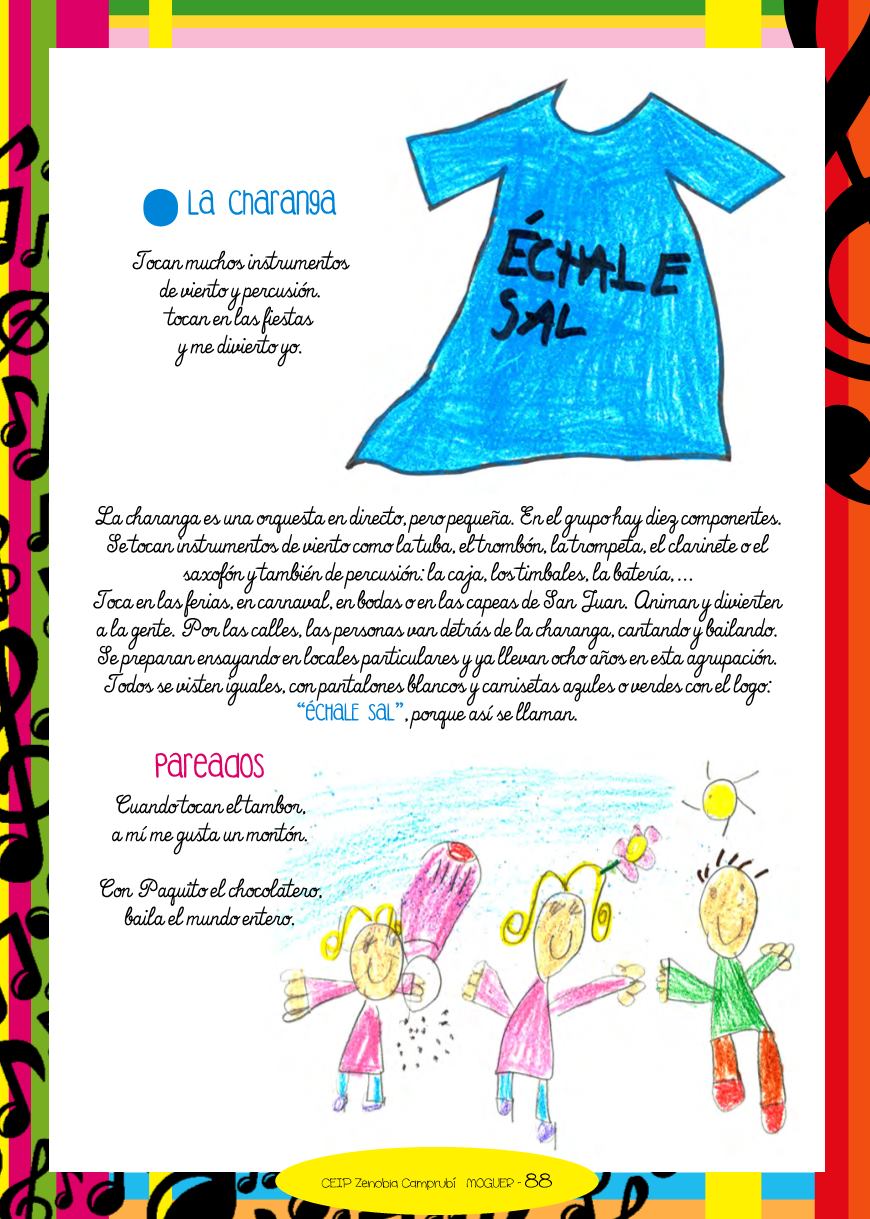 La charanga
Tocan muchos instrumentos
de viento y percusión.
tocan en las fiestas
y me divierto yo.
ÉCHALE
SAL
La charanga es una orquesta en directo, pero pequeña. En el grupo hay diez componentes.
Se tocan instrumentos de viento como la tuba, el trombón, la trompeta, el clarinete o el
saxofón y también de percusión: la caja, los timbales, la batería, ...
Toca en las ferias, en carnaval, en bodas o en las capeas de San Juan. Animan y divierten
a la gente. Por las calles, las personas van detrás de la charanga, cantando y bailando.
Se preparan ensayando en locales particulares y ya llevan ocho años en esta agrupación.
Todos se visten iguales, con pantalones blancos y camisetas azules o verdes con el logo:
“ÉCHALE SAL”, porque así se llaman.
Pareados
Cuando tocan el tambor,
a mí me gusta un montón.
Con Paquito el chocolatero,
baila el mundo entero.
CEIP Zenobia Camprubí MOGUER - 88